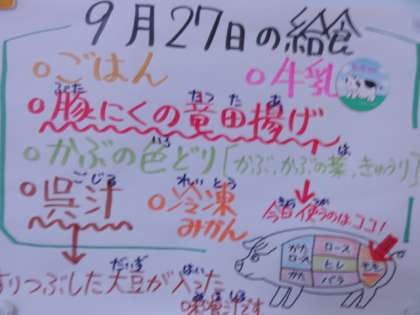 9月27日の給食
○ごはん ○牛乳
○豚にくの竜田揚げ
ぶた たつ た あ
○かぶの色どり[かぶ、かぶの葉、きゅうり]
いろ は
○呉汁 ○冷凍みかん
ごじる れい とう
今日使うのはココ!
きょう つか
かた ロース
ロース ヒレ モモ
かた バラ
すりつぶした大豆が入った
だいず はい
味噌汁です